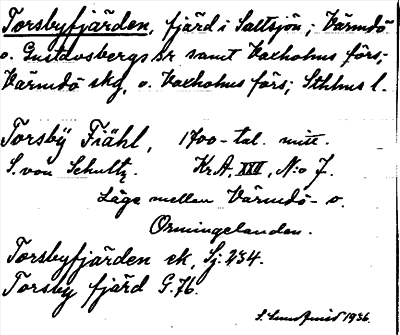 Torsbyfjärden, fjärd i Saltsjön; Värmdö
o. Gustavsbergs sr samt Vaxholms förs;
Värmdö skg, o. Vaxholms förs; Sthlms l.
Torsbÿ Fiähl, 1700-tal. mitt.
S. von Schultz. Kr.A, XXI, N:o 7.
Läge mellan Värmdö- o.
Ormingelanden.
Torsbyfjärden ek, Sj. 234.
Torsby fjärd G. 76.
1936.